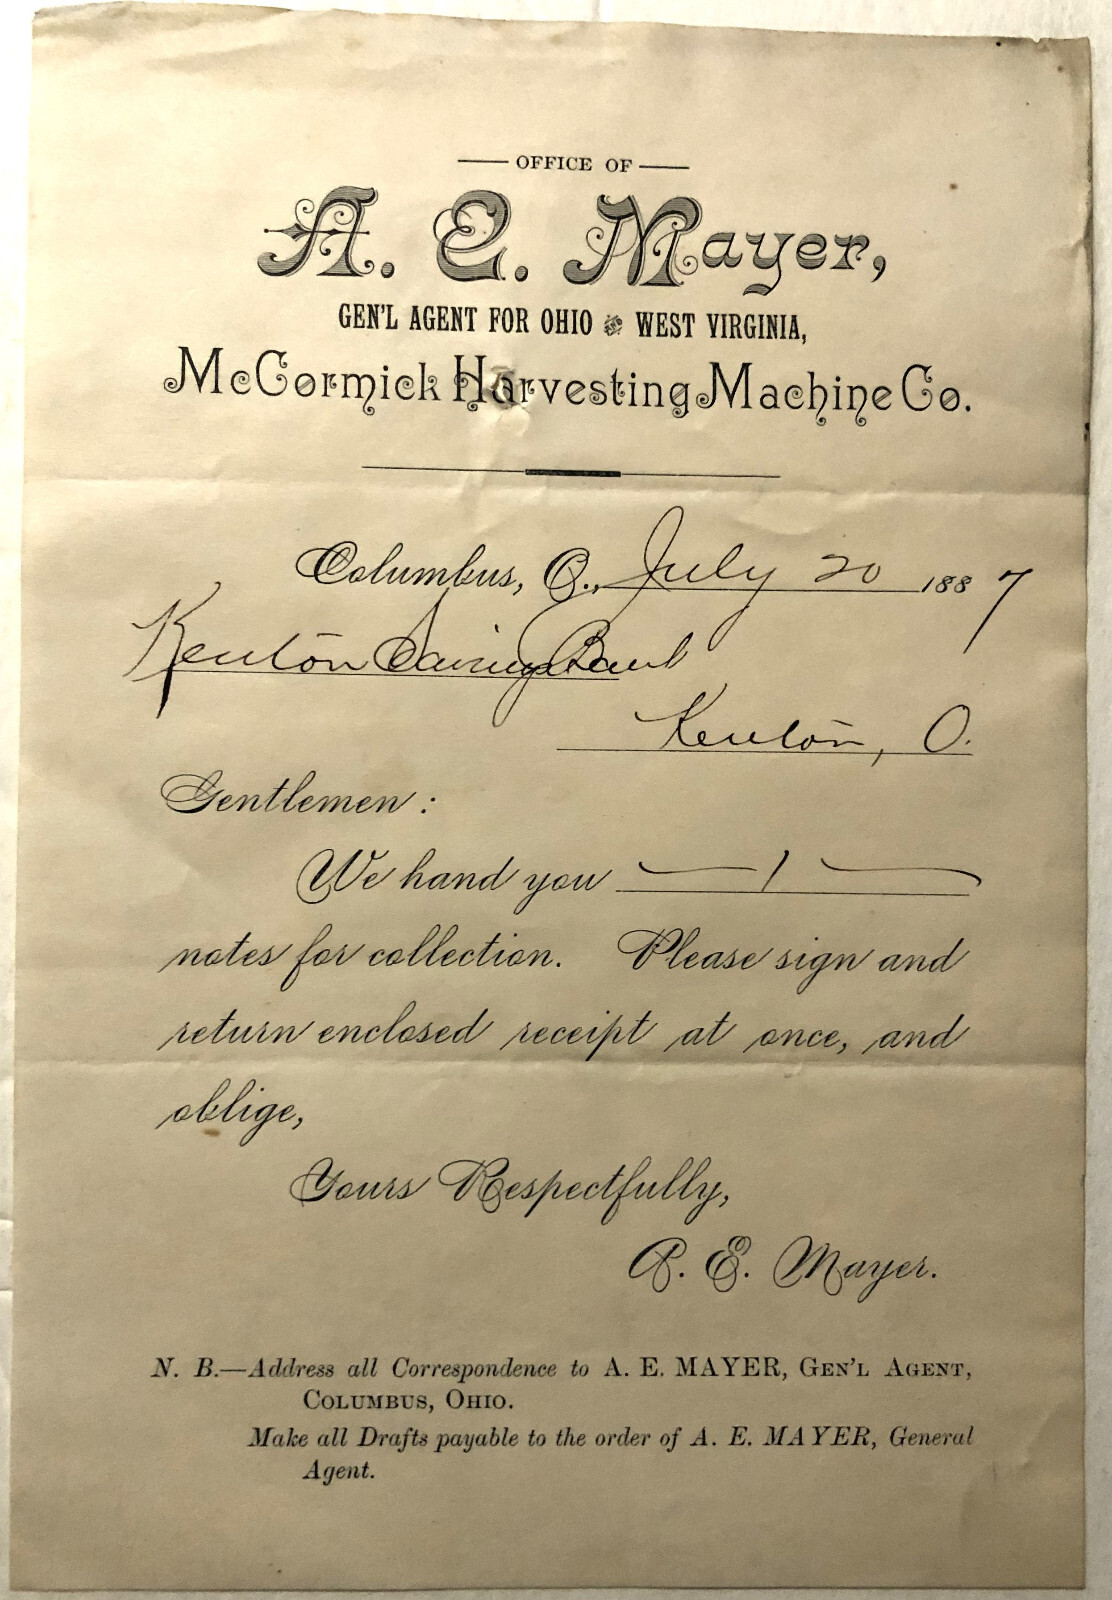 OFFICE OF
A. E. Mayer,
GEN'L AGENT FOR OHIO & WEST VIRGINIA,
McCormick Harvesting Machine Co.
Columbus, O., July 20 1887
Kenton Savings Bank
Kenton, O.
Gentlemen:
We hand you — 1 —
notes for collection. Please sign and
return enclosed receipt at once, and
oblige,
Yours Respectfully,
A. E. Mayer.
N. B.—Address all Correspondence to A. E. MAYER, GEN'L AGENT,
COLUMBUS, OHIO.
Make all Drafts payable to the order of A. E. MAYER, General
Agent.